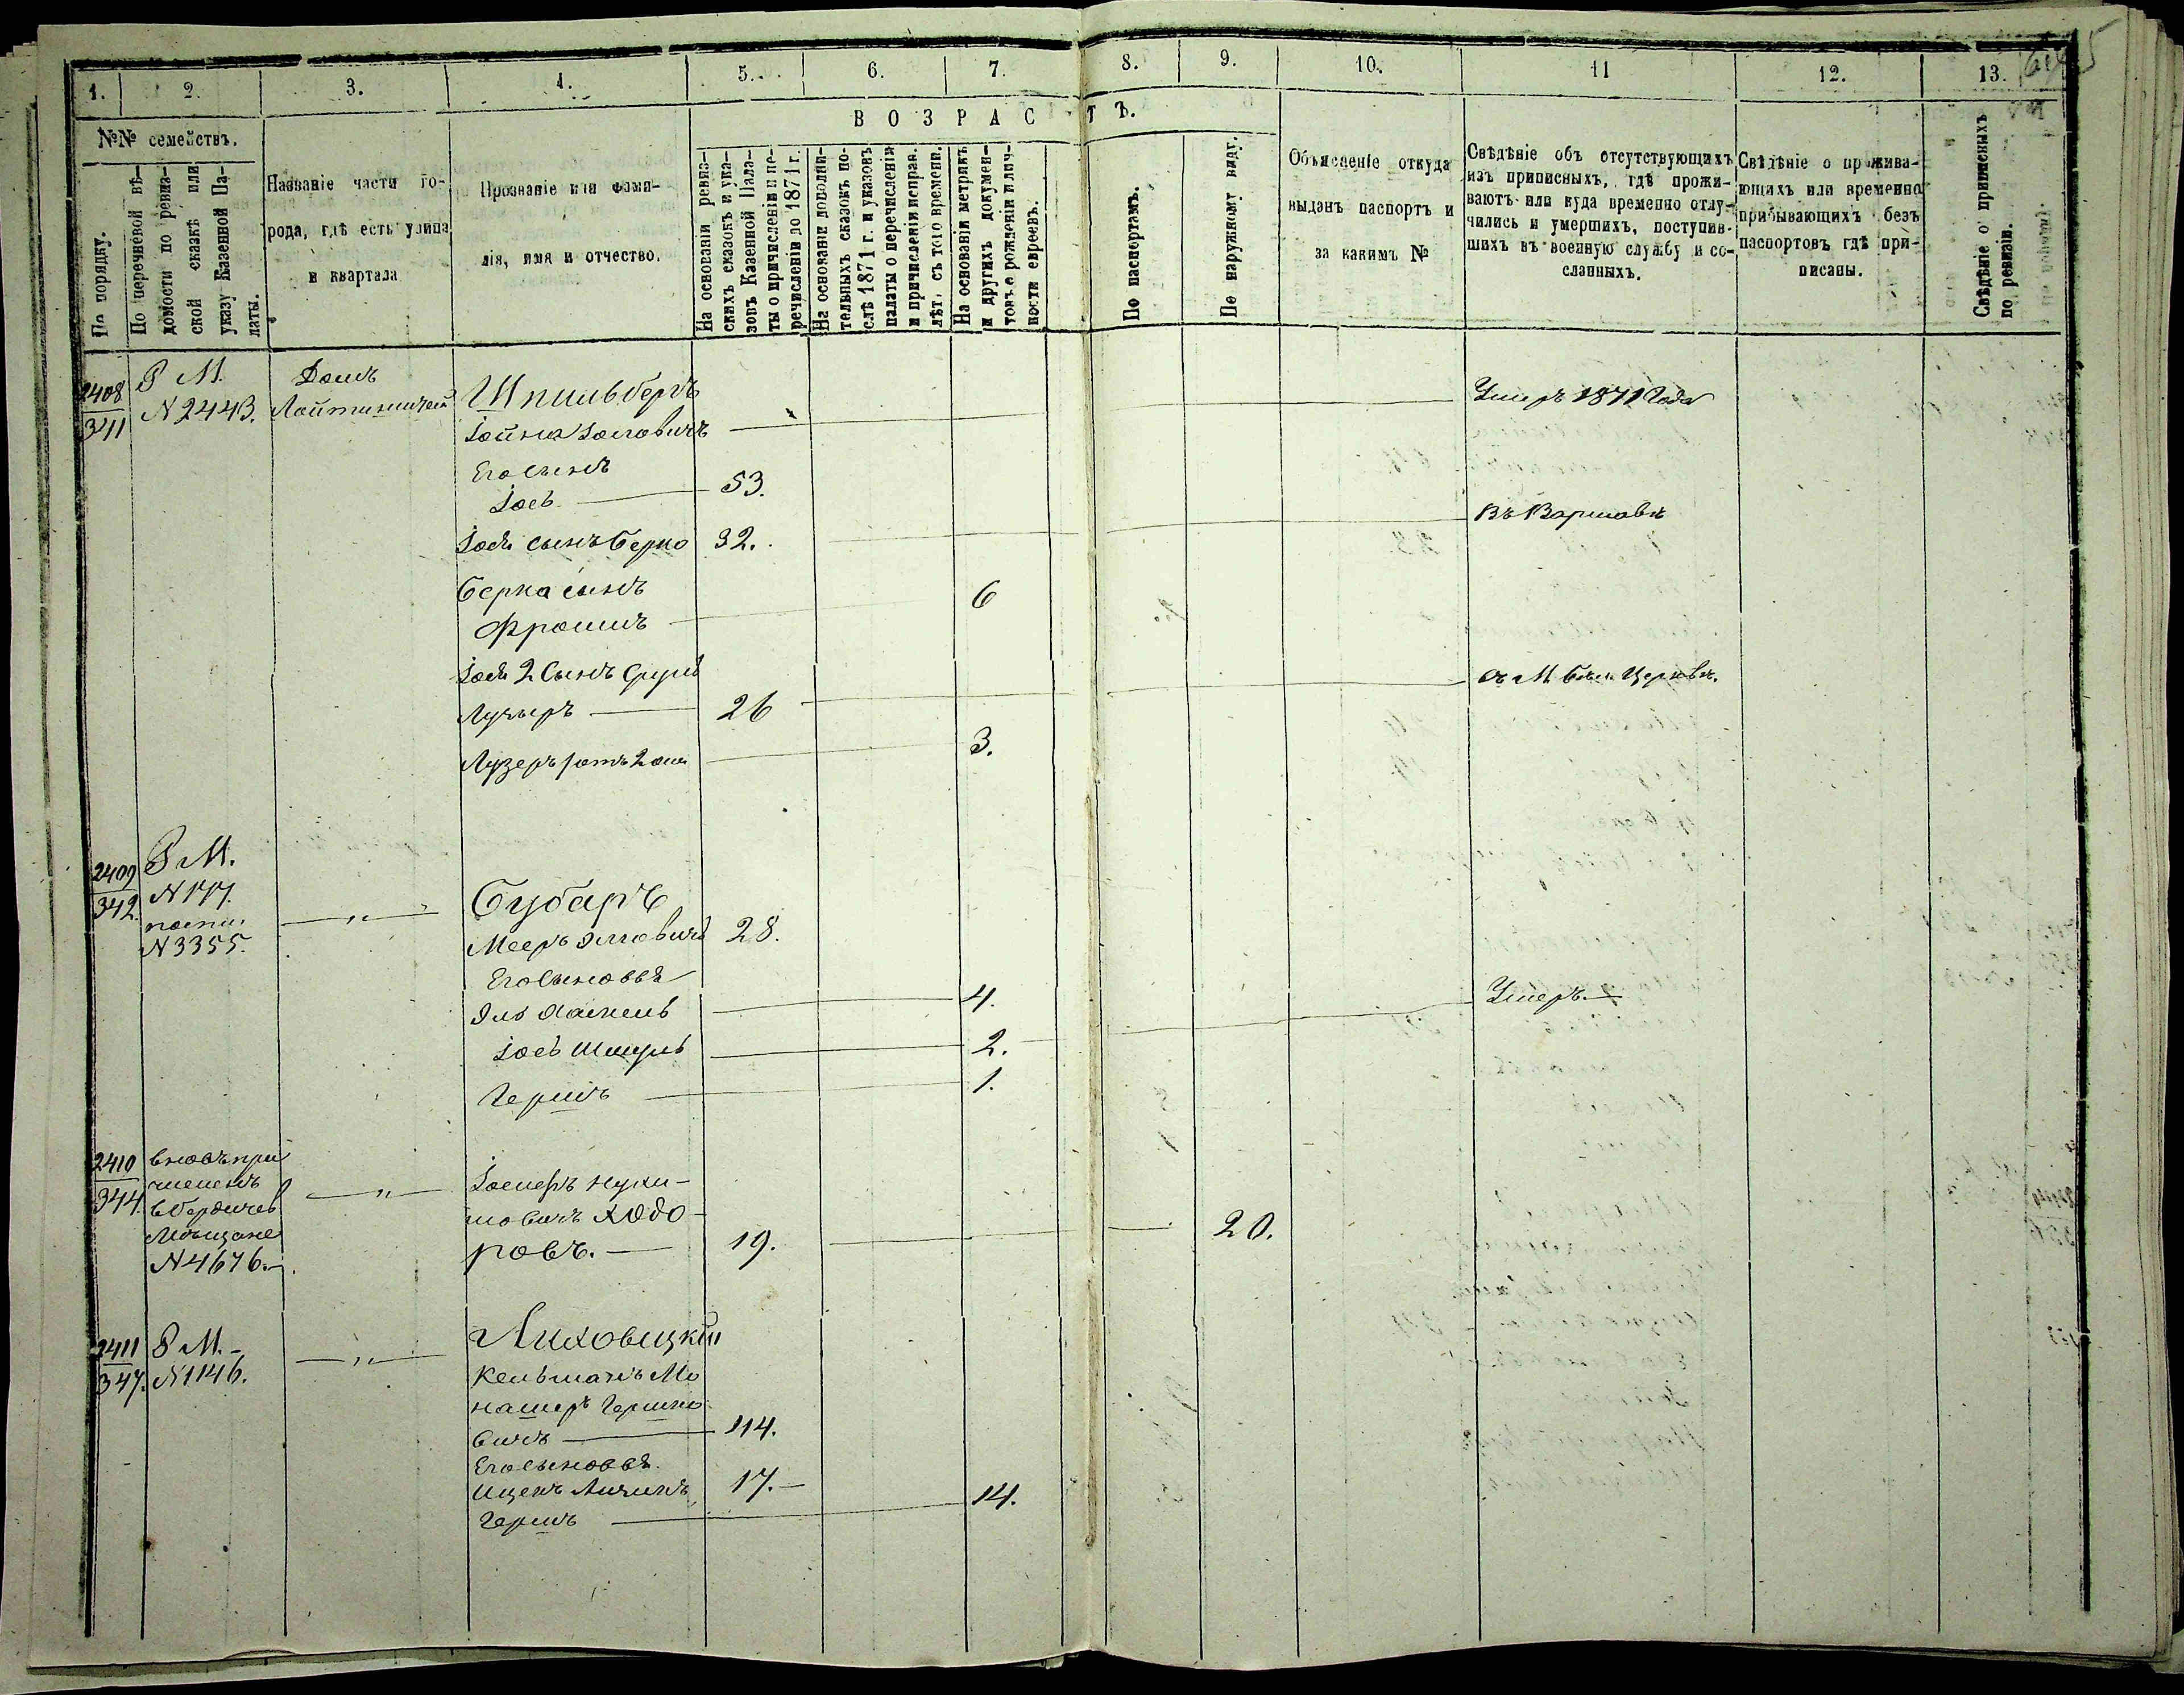 1. 2. 3. 4. 5. 6. 7. 8. 9. 10. 11 12. 13.
№№ семействъ.
По порядку.
По перечневой вѣ-
домости по ревиз-
ской сказкѣ или
указу Казенной Па-
латы.
Названіе части го-
рода, гдѣ есть улица
и квартала
Прозваніе или фами-
лія, имя и отчество.
ВОЗРАСТЪ.
На основаніи ревиз-
скихъ сказокъ и ука-
зовъ Казенной Пала-
ты о причисленіи и пе-
речисленіи до 1871 г.
На основаніи дополни-
тельныхъ сказокъ по-
слѣ 1871 г. и указовъ
палаты о перечисленіи
и причисленіи исправ.
лѣт. съ того времени.
На основаніи метрикъ
и другихъ докумен-
товъ о рожденіи и лич-
ности евреевъ.
По паспортамъ.
По наружному виду.
Объясненіе откуда
выданъ паспортъ и
за какимъ №
Свѣдѣніе объ отсутствующихъ
изъ приписныхъ, гдѣ прожи-
ваютъ или куда временно отлу-
чились и умершихъ, поступив-
шихъ въ военную службу и со-
сланныхъ.
Свѣдѣніе о прожива-
ющихъ или временно
прибывающихъ безъ
паспортовъ гдѣ при-
писаны.
Свѣдѣніе о приписныхъ
по ревизіи.
2408 Р М. Домъ Шпильбергъ Умеръ 1871 Года
341 N 2443. Іойна Іосіовичъ
Его сынъ
Іосъ 53.
Іося сынъ Берко 32. Въ Варшавѣ
Берка сынъ
Фроимъ 6
Іося 2 Сынъ Сруль
Лузыръ 26 въ М. Бѣл. Церквѣ.
Лузеръ 3.
2409 Р М.
342. N 177. Бубаръ
N 3355. Мееръ Эллевичъ 28.
Его сыновья
Эль Хаскель 4. Умеръ
Іось Шмуль 2.
Гершъ 1.
2410 вновь при
344. численъ Іосиеръ Нухи-
въ Бердичев мовичъ Ходо-
Мѣщане
N 4676. ровъ. 19. 20.
2411 Р М. Лиховицкій
347. N 1146. Кельманъ Мо
нашеръ Гершко
вичъ 44.
Его сыновья
Ицекъ Айзикъ 17.
Гершъ 14.